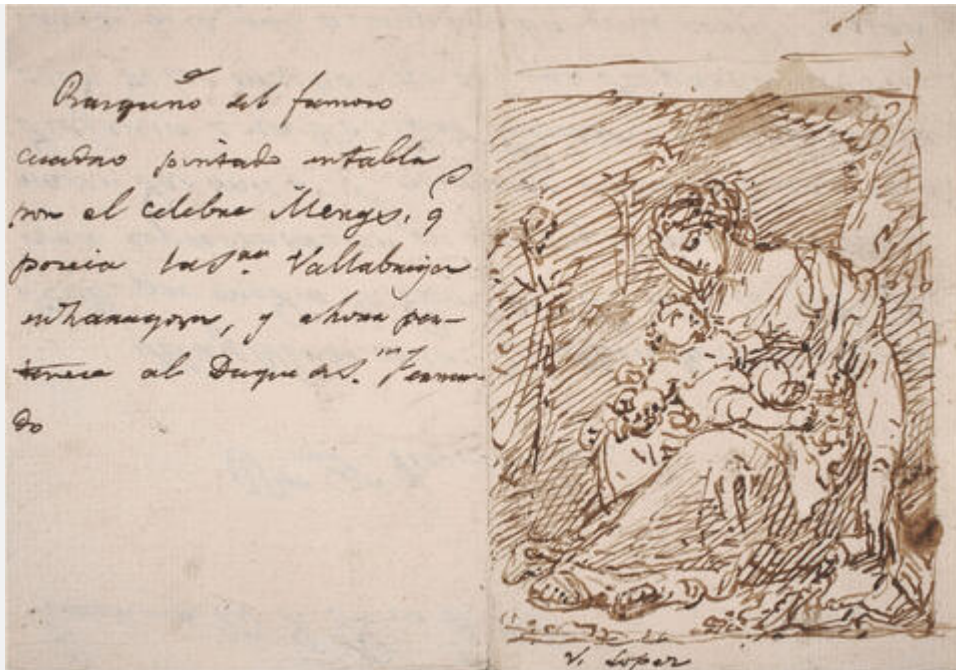 Rasguño del famoso
cuadro pintado en tabla
por el celebre Mengs, q
poseia la S.ra Vallabriga
en Zaragoza, y ahora per-
tenece al Duque de S.n Fernan-
do
V. Lopez